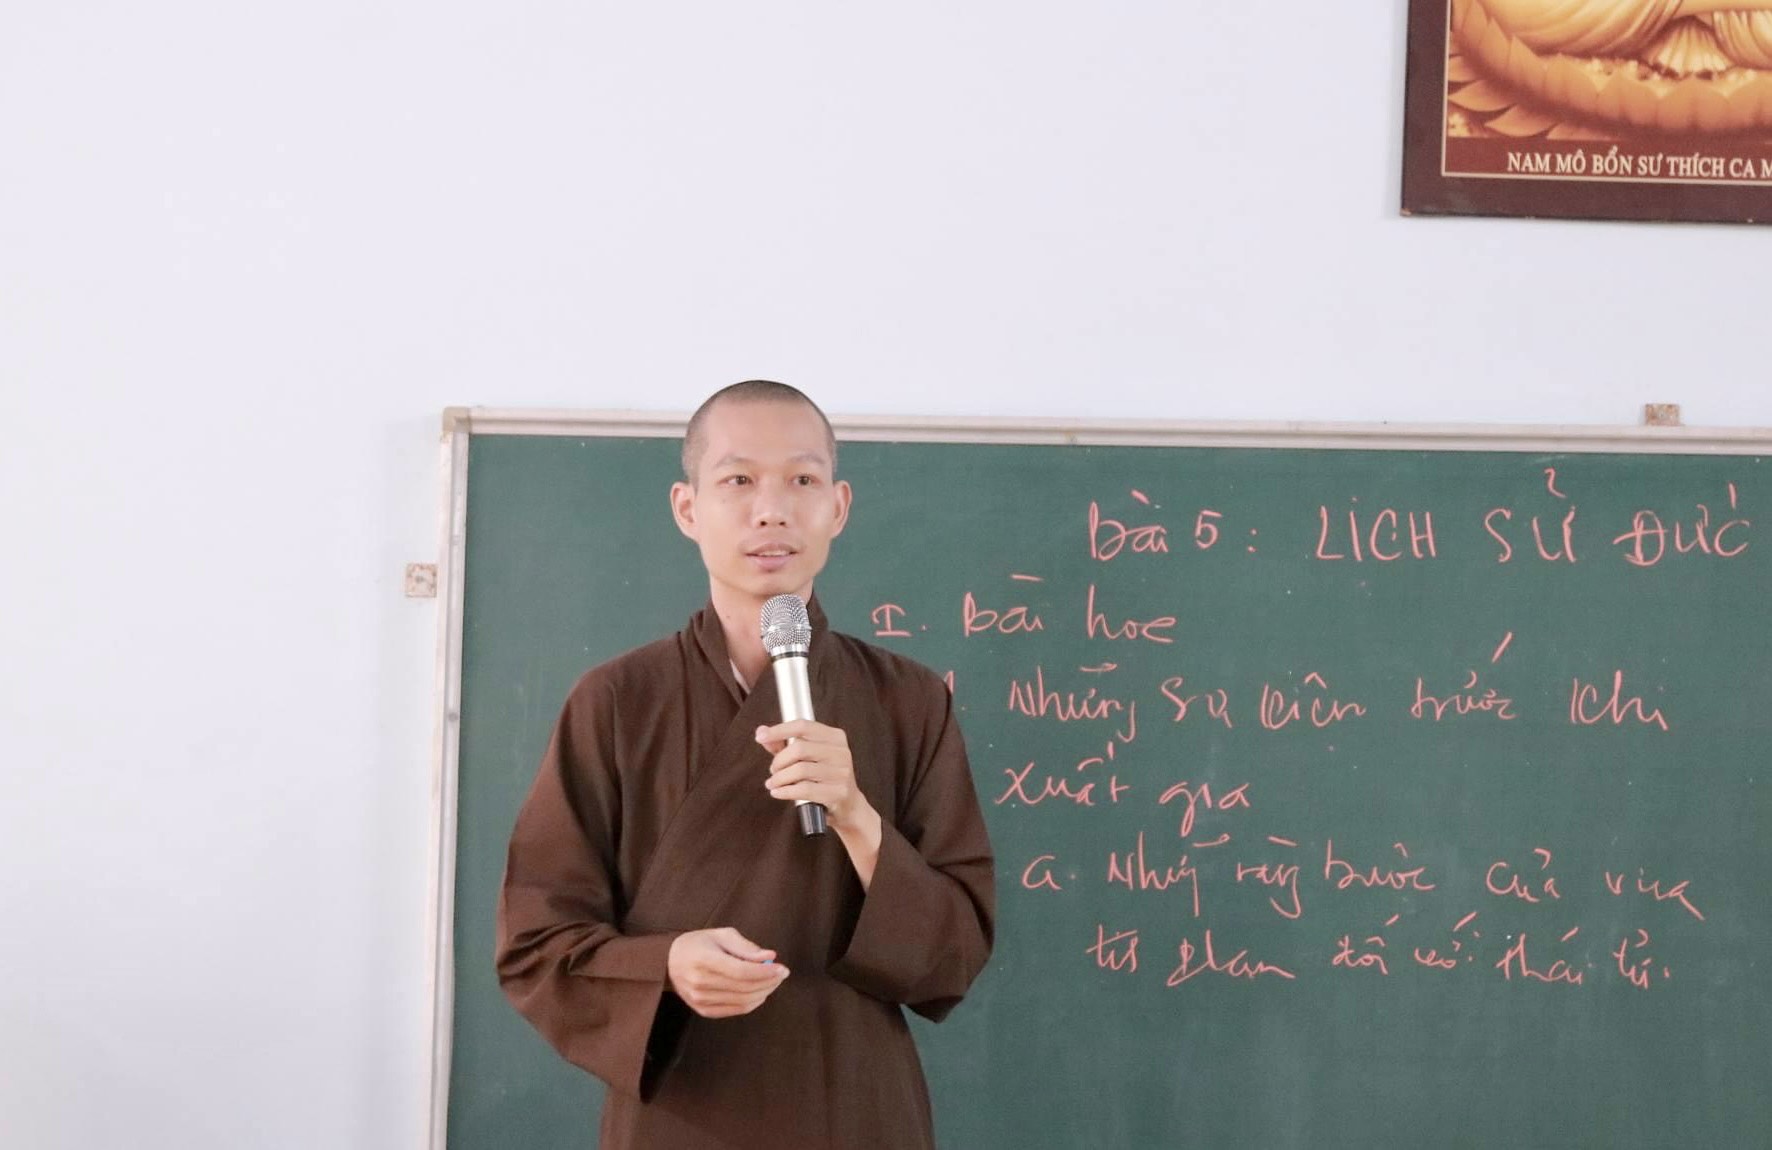 NAM MÔ BỔN SƯ THÍCH CA M
Bài 5: LỊCH SỬ ĐỨC
I. Bài học
1. Những sự kiện trước khi
xuất gia
a. Những ràng buộc của vua
tịnh phạn đối với thái tử.